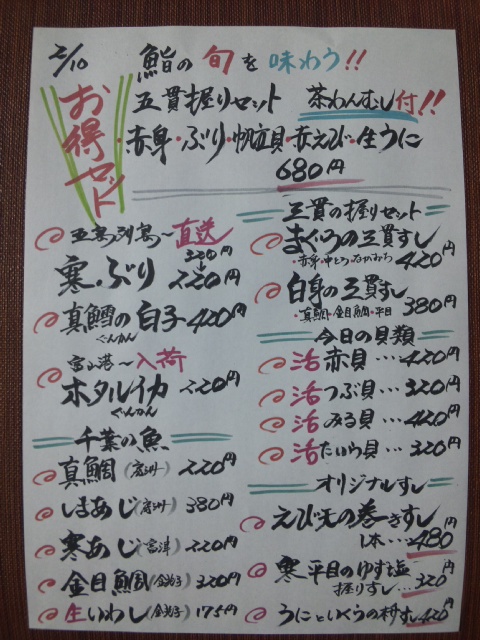 2/10
鮨の旬を味わう!!
お得セット
五貫握りセット 茶わんむし付!!
・赤身・ぶり・帆立貝・赤えび・生うに
680円
五島列島〜直送
寒ぶり 320円→220円
真鱈の白子 420円
ぐんかん
富山港〜入荷
ホタルイカ 220円
ぐんかん
千葉の魚
真鯛 220円
しまあじ 380円
寒あじ(富津) 220円
金目鯛(銚子) 320円
生いわし(銚子) 175円
三貫の握りセット
まぐろの三貫すし
・赤身・中とろ・ 420円
白身の三貫すし
・真鯛・金目鯛・平目 380円
今日の貝類
活赤貝… 420円
活つぶ貝… 320円
活みる貝… 420円
活たいら貝… 320円
オリジナルすし
えび天の巻きすし
1本… 480円
寒平目のゆず塩
握りすし… 320円
うにといくらの村すし 420円